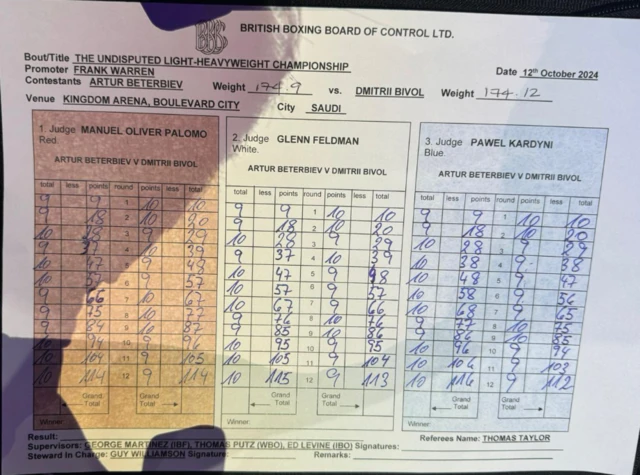 BRITISH BOXING BOARD OF CONTROL LTD.
Bout/Title THE UNDISPUTED LIGHT-HEAVYWEIGHT CHAMPIONSHIP
Promoter FRANK WARREN Date 12th October 2024
Contestants ARTUR BETERBIEV Weight 174.9 vs. DMITRII BIVOL Weight 174.12
Venue KINGDOM ARENA, BOULEVARD CITY City SAUDI
1. Judge MANUEL OLIVER PALOMO
Red.
ARTUR BETERBIEV V DMITRII BIVOL
total less points round points less total
9 9 1 10 10
9 18 2 10 20
10 28 3 9 29
9 4 10 39
10 47 5 9 48
10 57 6 9 57
9 66 7 10 67
9 75 8 10 77
9 84 9 10 87
10 94 10 9 96
10 104 11 9 105
10 114 12 9 114
Grand Total Grand Total
Winner:
2. Judge GLENN FELDMAN
White.
ARTUR BETERBIEV V DMITRII BIVOL
total less points round points less total
9 9 1 10 10
9 18 2 10 20
10 28 3 9 29
9 37 4 10 39
10 47 5 9 48
10 57 6 9 57
10 67 7 9 66
9 76 8 10 76
9 85 9 10 86
10 95 10 9 95
10 105 11 9 104
10 115 12 9 113
Grand Total Grand Total
Winner:
3. Judge PAWEL KARDYNI
Blue.
ARTUR BETERBIEV V DMITRII BIVOL
total less points round points less total
9 9 1 10 10
9 18 2 10 20
10 28 3 9 29
10 38 4 9 38
10 48 5 9 47
10 58 6 9 56
10 68 7 9 65
9 77 8 10 75
9 86 9 10 85
10 96 10 9 94
10 106 11 9 103
10 116 12 9 112
Grand Total Grand Total
Winner:
Result: Referees Name: THOMAS TAYLOR
Supervisors: GEORGE MARTINEZ (IBF), THOMAS PUTZ (WBO), ED LEVINE (IBO) Signatures:
Steward In Charge: GUY WILLIAMSON Signature: Remarks: